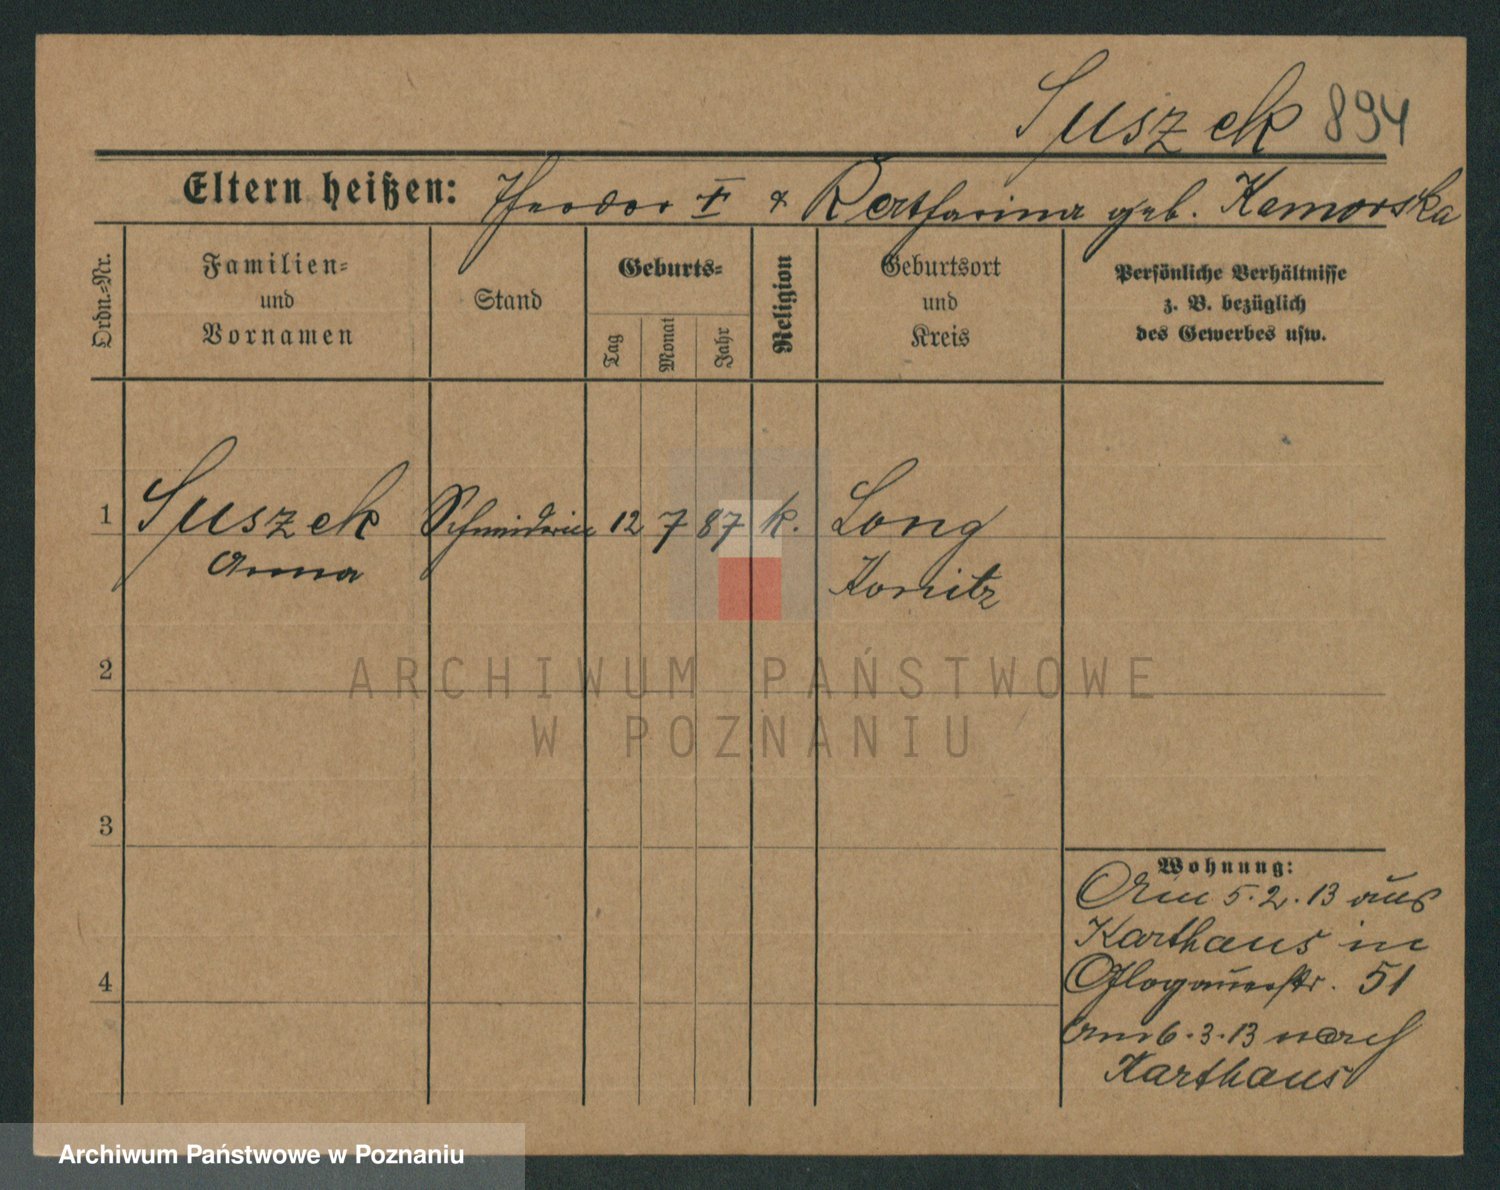 Suszek 894
Eltern heißen: Theodor † & Katharina geb. Kamorska
Ordn.-Nr.
Familien-
und
Vornamen
Stand
Geburts-
Tag
Monat
Jahr
Religion
Geburtsort
und
Kreis
Persönliche Verhältnisse
z. B. bezüglich
des Gewerbes usw.
1 Suszek Schneiderin 12 7 87 k. Long
Anna Konitz
2
3
4
Wohnung:
Am 5.2.13 aus
Karthaus in
Glogauerstr. 51
am 6.3.13 nach
Karthaus
ARCHIWUM PAŃSTWOWE
W POZNANIU
Archiwum Państwowe w Poznaniu